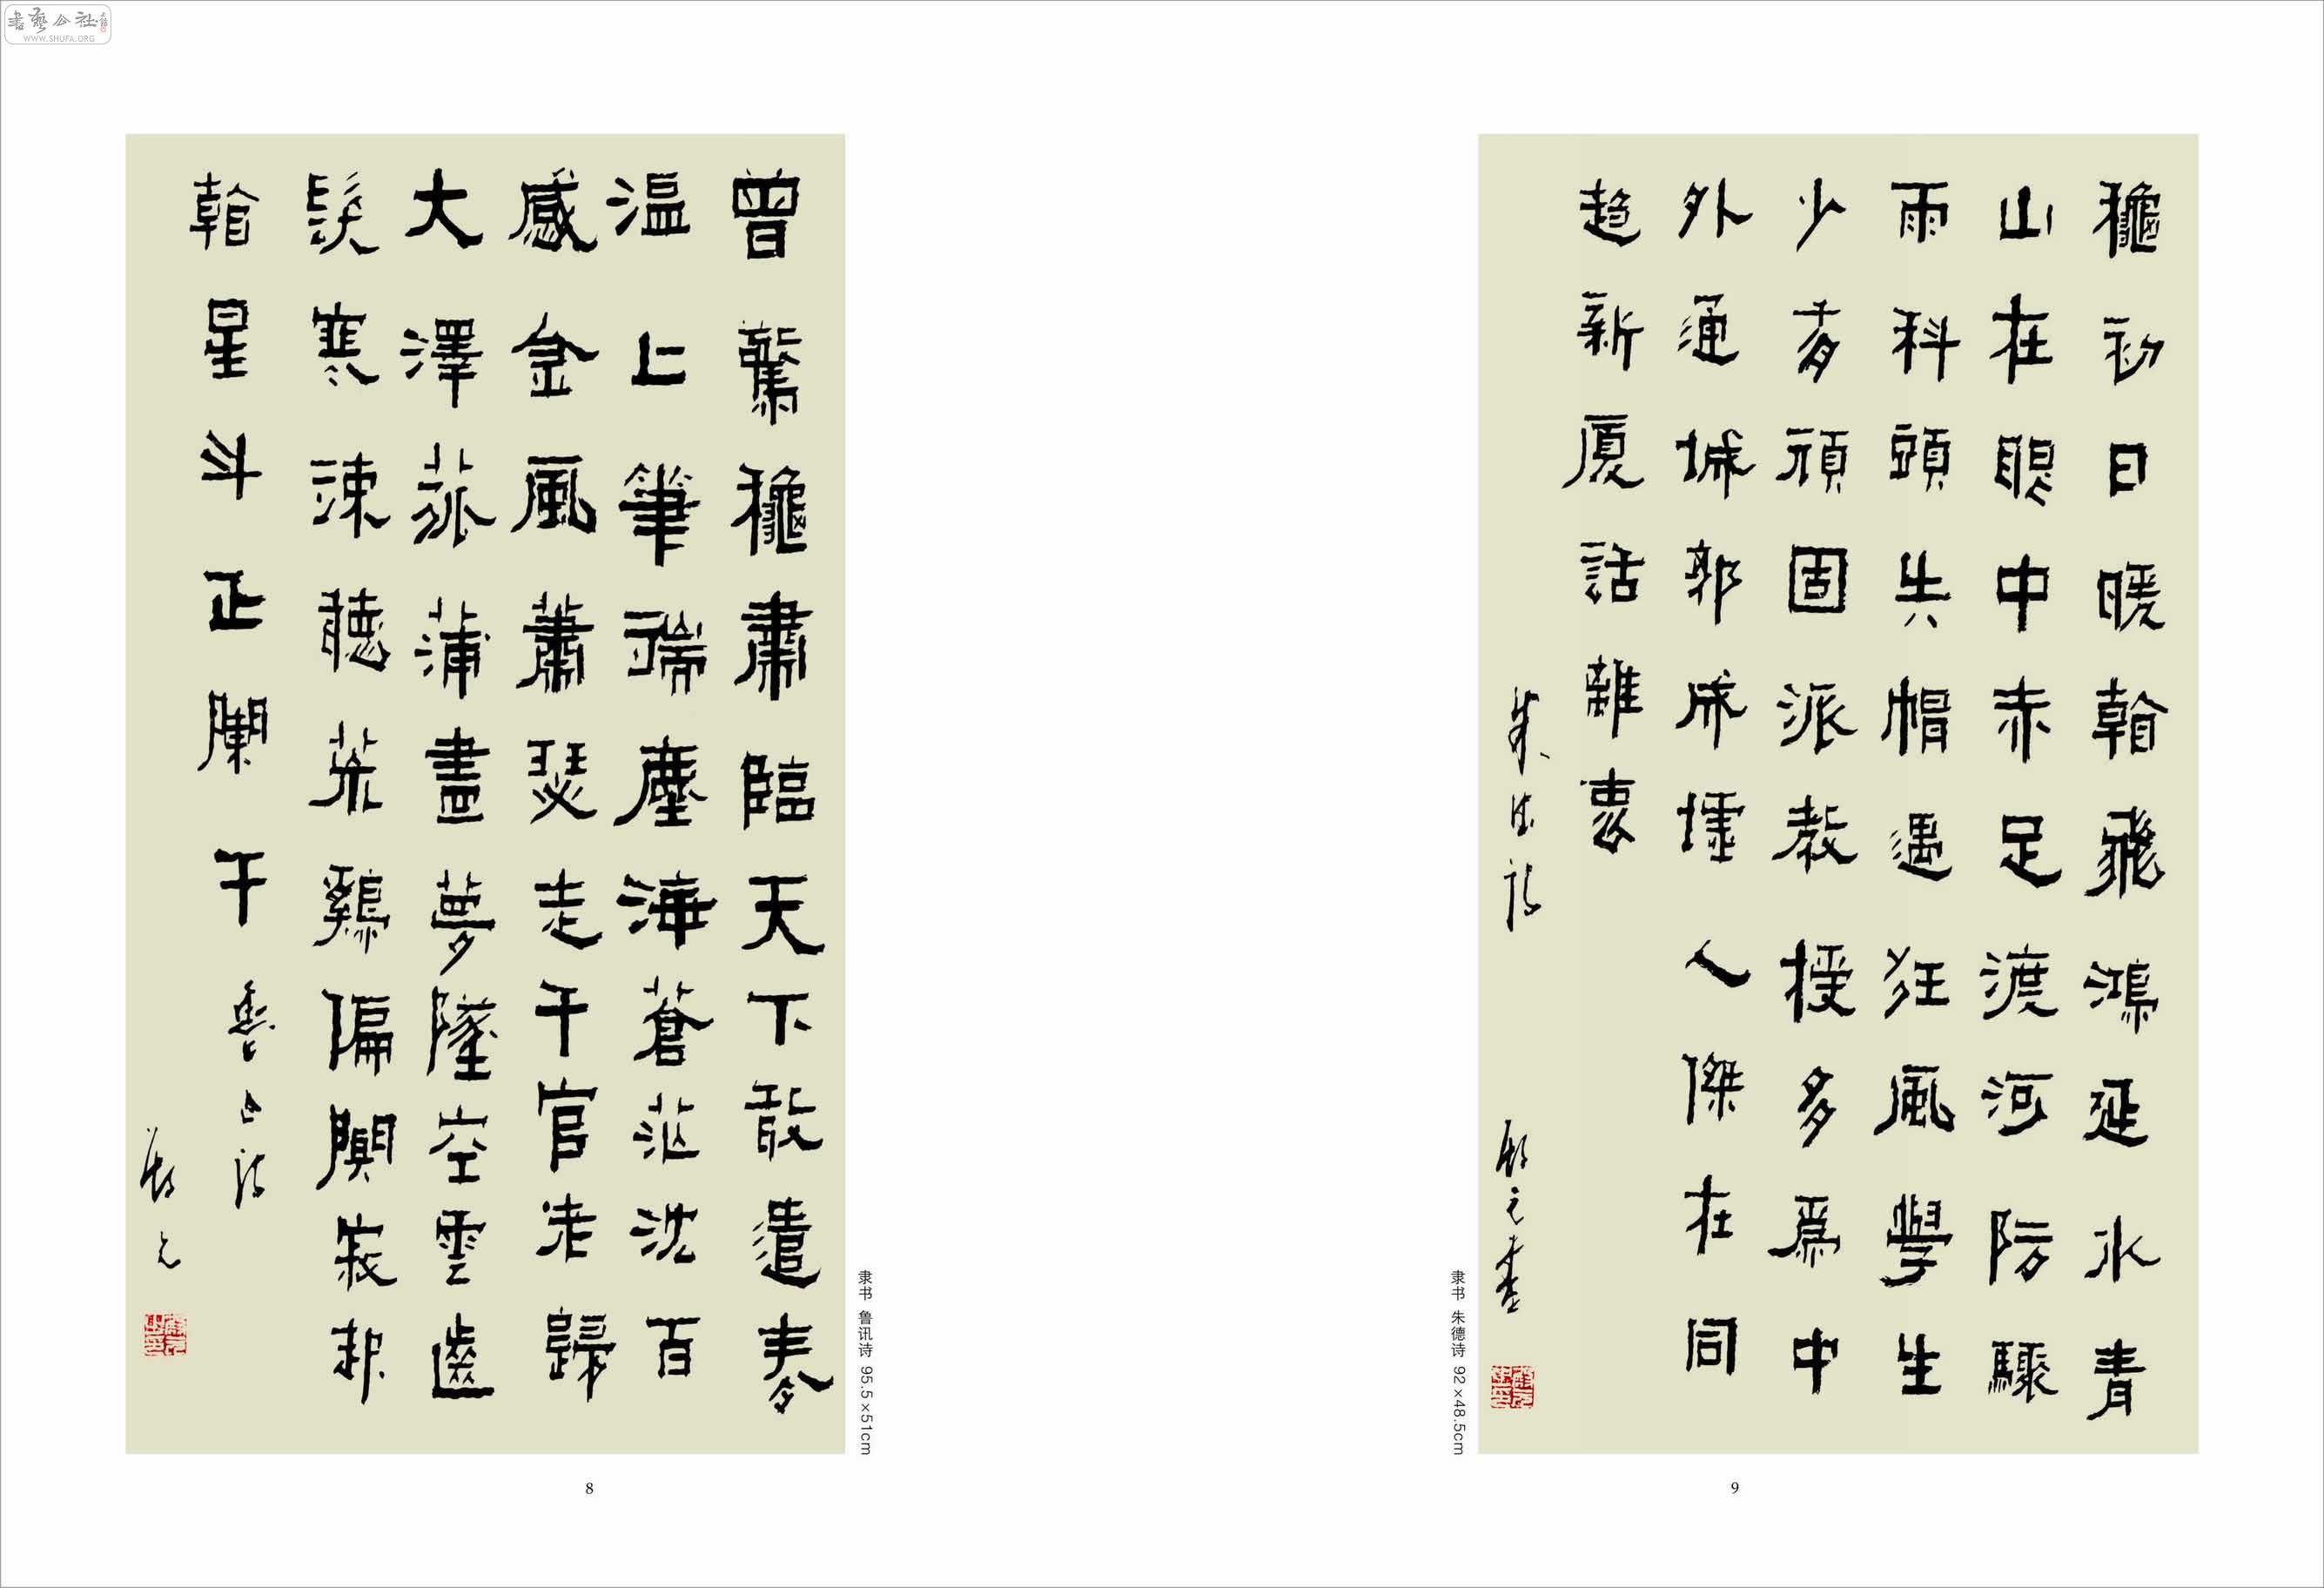 書藝公社
WWW.SHUFA.ORG
曾驚龝肅臨天下敢遣春
溫上筆端塵海蒼茫沈百
感金風蕭瑟走千官老歸
大澤菰蒲盡夢墜空雲齒
髮寒竦聽荒鷄偏闃寂起
看星斗正闌干 魯迅詩
隶书 鲁讯诗 95.5×51cm
8
龝初日暖看飛鴻延水青
山在眼中赤足渡河防驟
雨科頭失帽遇狂風學生
少有頑固派教授多爲中
外通城郭成墟人傑在同
趨新厦話離衷
朱德詩
隶书 朱德诗 92×48.5cm
9